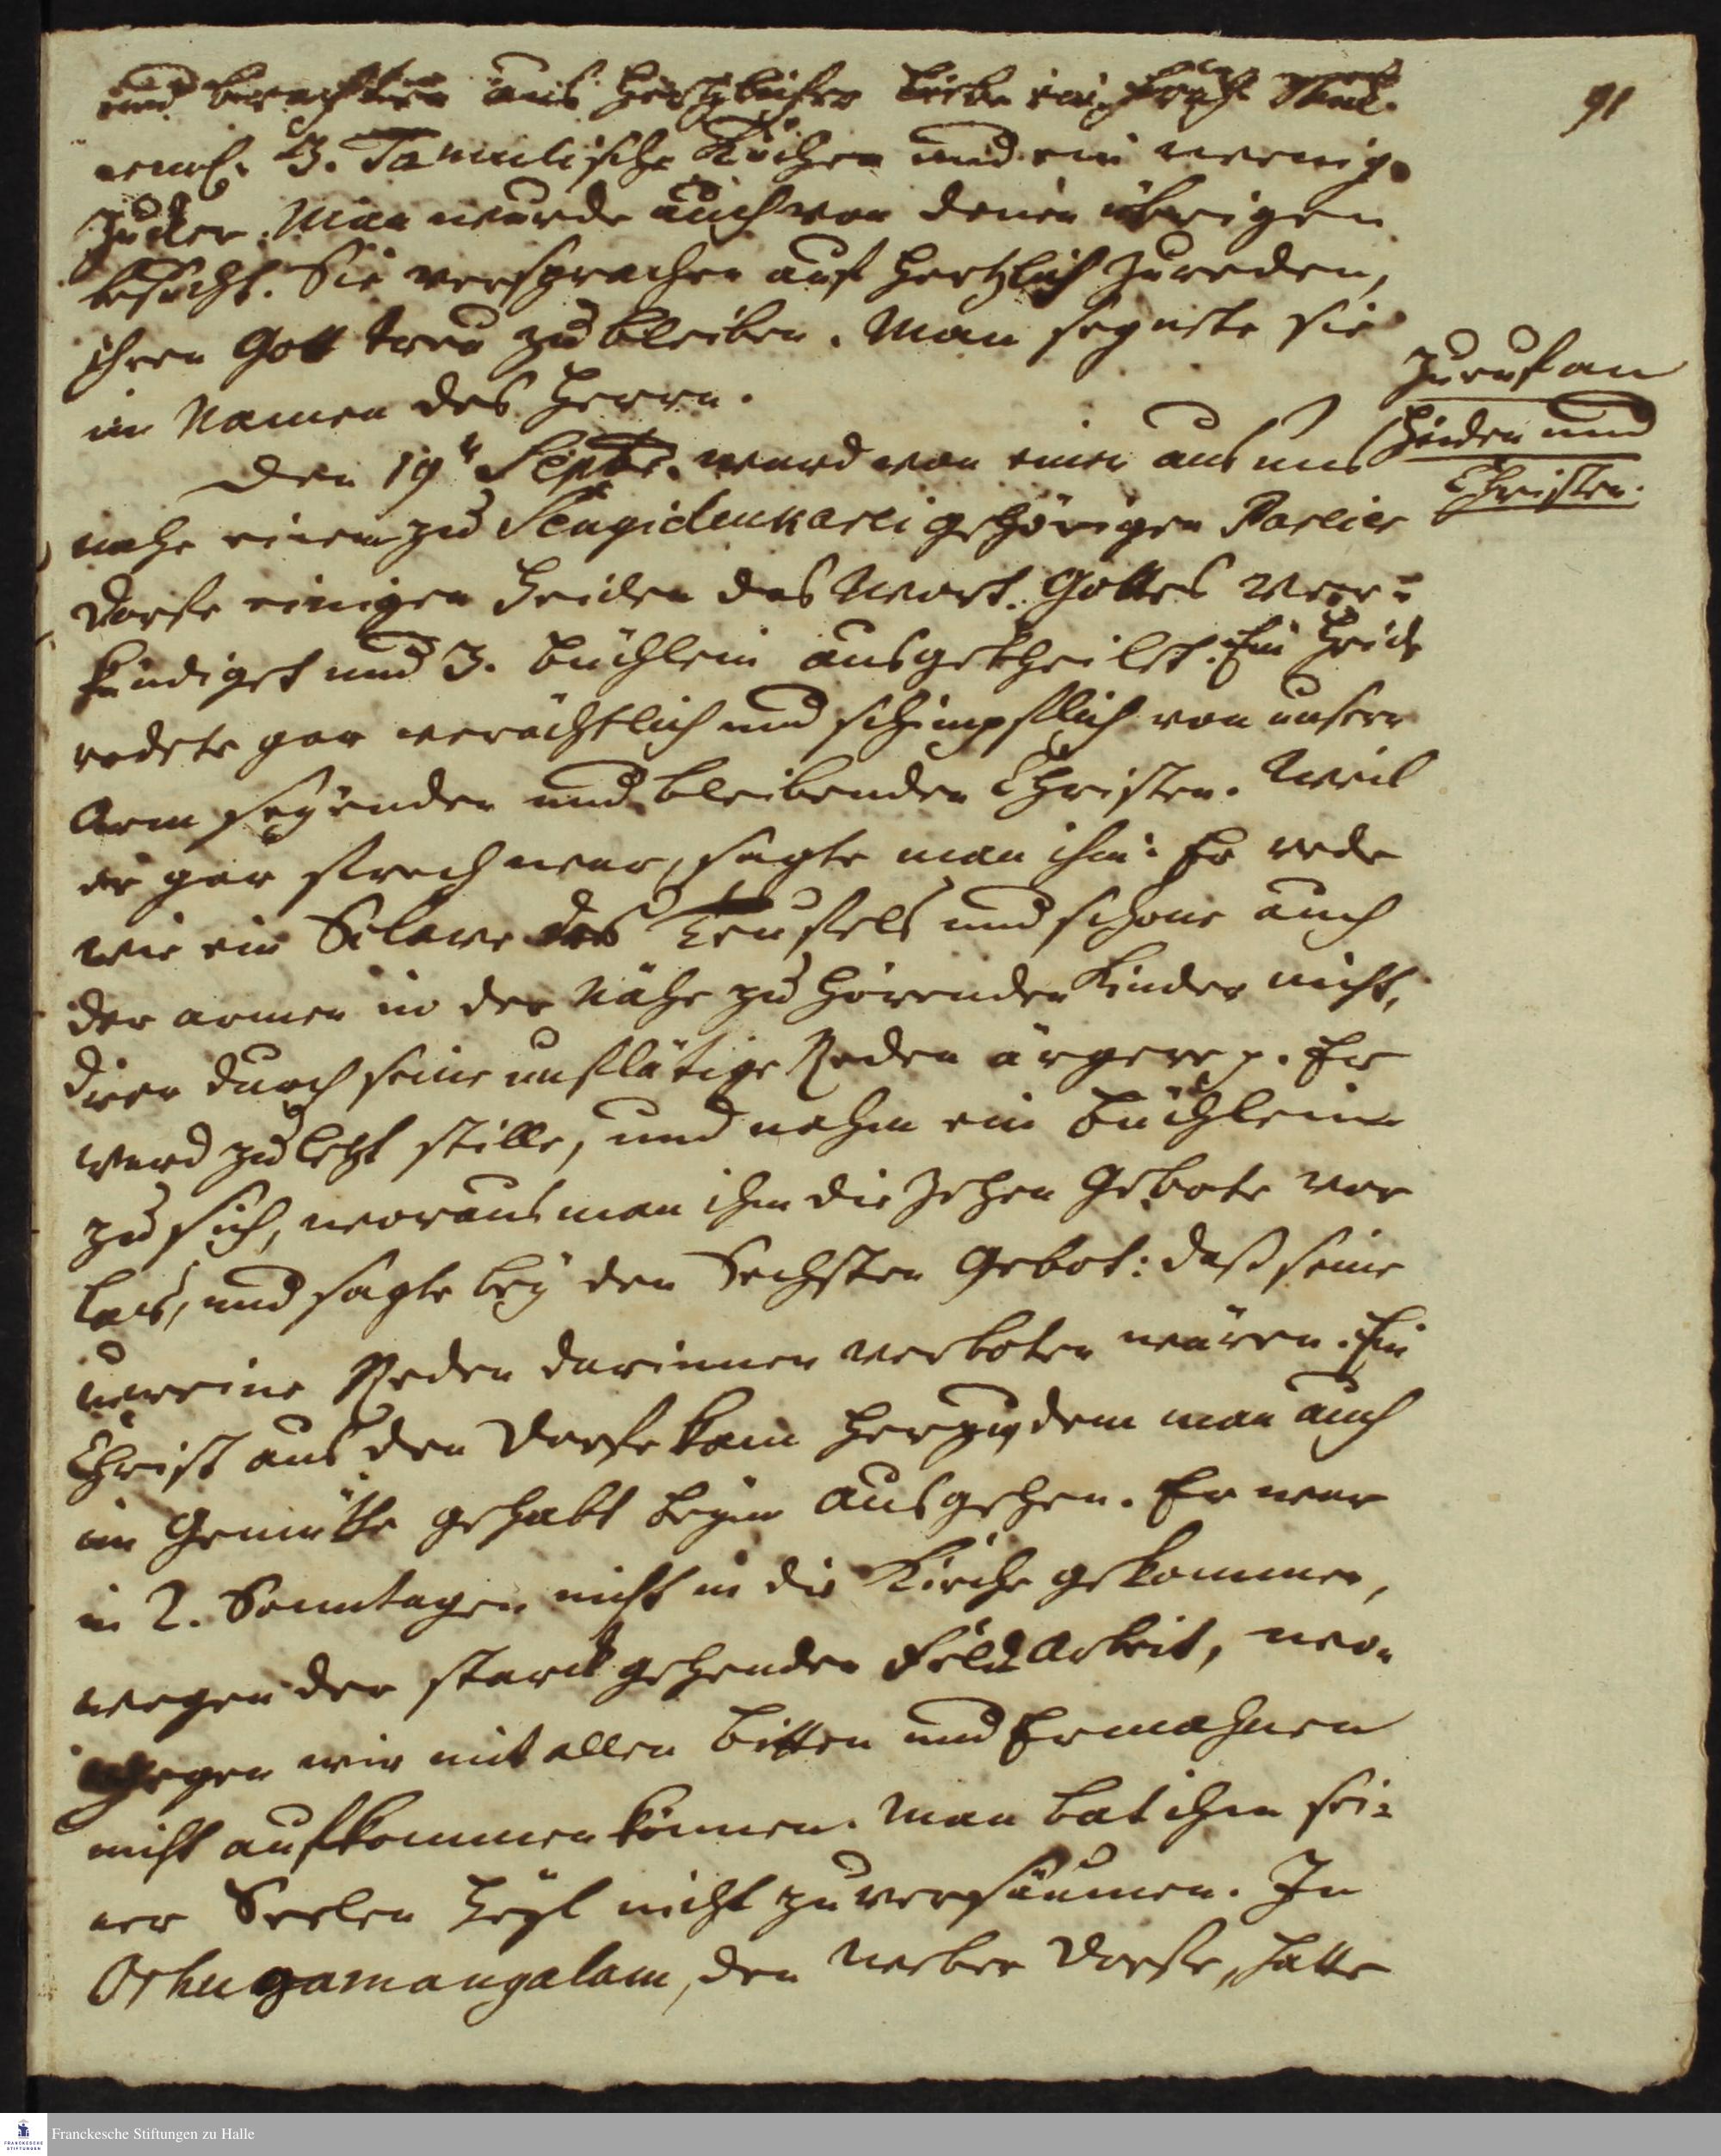 91
und brachten aus Hertzlicher Liebe ein
3. Tamulische Kuchen und ein wenig
Zucker. Man wurde auch von denen übrigen
besucht. Sie versprachen auf hertzlich zureden,
ihren Gott treu zu bleiben. Man segnete sie
im Namen des Herrn.
Zuruf an
Heiden und
Christen.
Den 19t Septbr. ward von einem aus uns
nahe einem zu gehörigen Pareier
Dorfe einigen Heiden das Wort Gottes ver=
kündiget und 3. Büchlein ausgetheilet. Ein Heide
redete gar verächtlich und schimpflich von unsern
Arm seyenden und bleibenden Christen. Weil
er gar frech war, sagte man ihm: Er rede
wie ein Sclave des Teufels und schone auch
der armen in der Nähe zu hörenden Kinder nicht,
die er durch seine unflätige Reden ärgere p. Er
ward zu letzt stille, und nahm ein Büchlein
zu sich, woraus man ihm die Zehen Gebote vor
las, und sagte bey den Sechsten Gebot: daß seine
unreine Reden darinnen verboten wären. Ein
Christ aus den Dorfe kam herzu, dem man auch
im Gemüthe gehabt beym ausgehen. Er war
in 2. Sonntagen nicht in die Kirche gekommen,
wegen der starck gehenden Feld Arbeit, wo=
gegen wir mit allen bitten und Ermahnen
nicht aufkommen können. Man bat ihm sei=
ner Seelen Heyl nicht zu versäumen. In
Oshugamangalam, den Weber Dorfe, hatte
Franckesche Stiftungen zu Halle
FRANCKESCHE
STIFTUNGEN